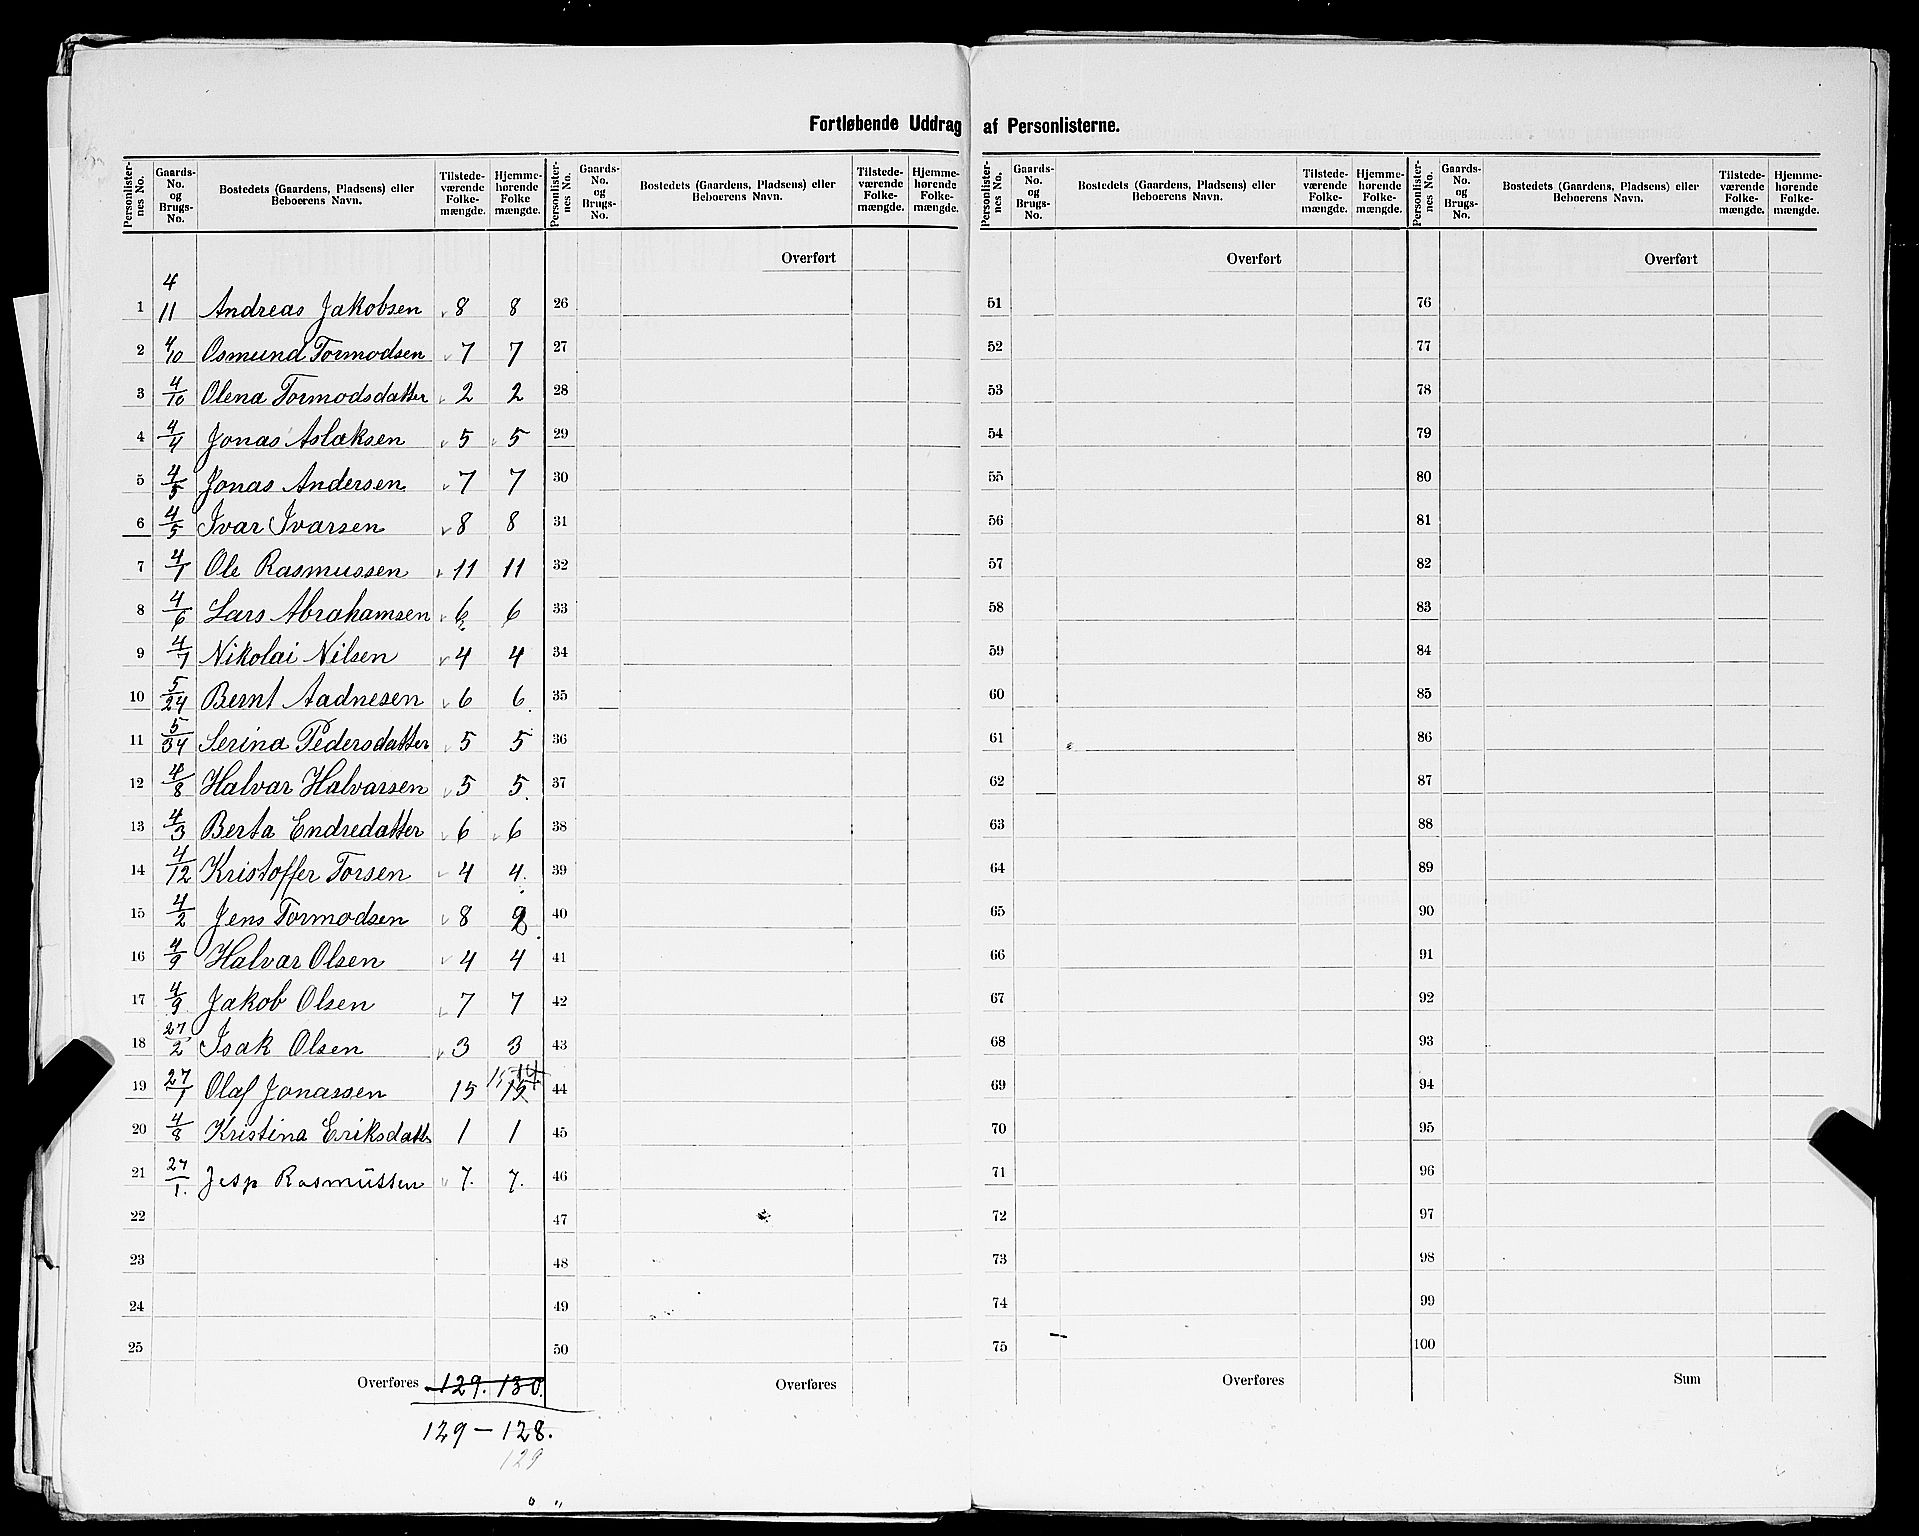 Fortløbende Uddrag af Personlisterne.
Personlister-nes No. Gaards-No. og Brugs-No. Bostedets (Gaardens, Pladsens) eller Beboerens Navn. Tilstede-værende Folke-mængde. Hjemme-hørende Folke mængde.
1 4/11 Andreas Jakobsen 8 8
2 4/10 Osmund Tormodsen 7 7
3 4/10 Olena Tormodsdatter 2 2
4 4/4 Jonas Aslaksen 5 5
5 4/5 Jonas Andersen 7 7
6 4/5 Ivar Ivarsen 8 8
7 4/1 Ole Rasmussen 11 11
8 4/6 Lars Abrahamsen 6 6
9 4/7 Nikolai Nilsen 4 4
10 5/24 Bernt Aadnesen 6 6
11 5/34 Serina Pedersdatter 5 5
12 4/8 Halvar Halvarsen 5 5
13 4/3 Berta Endredatter 6 6
14 4/12 Kristoffer Torsen 4 4
15 4/2 Jens Tormodsen 8
16 4/9 Halvar Olsen 4 4
17 4/9 Jakob Olsen 7 7
18 27/2 Isak Olsen 3 3
19 27/1 Olaf Jonassen 15 15 14 15
20 4/8 Kristina Eriksdatt 1 1
21 27/1. Jesp Rasmüssen 7. 7.
22
23
24
25
Overføres 129. 130.
129 – 128.
129
Personlister-nes No. Gaards-No. og Brugs-No. Bostedets (Gaardens, Pladsens) eller Beboerens Navn. Tilstede-værende Folke-mængde. Hjemme-hørende Folke-mængde.
Overført
26
27
28
29
30
31
32
33
34
35
36
37
38
39
40
41
42
43
44
45
46
47
48
49
50
Overføres
Personlister-nes No. Gaards-No. og Brugs-No. Bostedets (Gaardens, Pladsens) eller Beboerens Navn. Tilstede-værende Folke-mængde. Hjemme-hørende Folke-mængde.
Overført
51
52
53
54
55
56
57
58
59
60
61
62
63
64
65
66
67
68
69
70
71
72
73
74
75
Overføres
Personlister-nes No. Gaards-No. og Brugs-No. Bostedets (Gaardens, Pladsens) eller Beboerens Navn. Tilstede-værende Folke-mængde. Hjemme-hørende Folke-mængde.
Overført
76
77
78
79
80
81
82
83
84
85
86
87
88
89
90
91
92
93
94
95
96
97
98
99
100
Sum